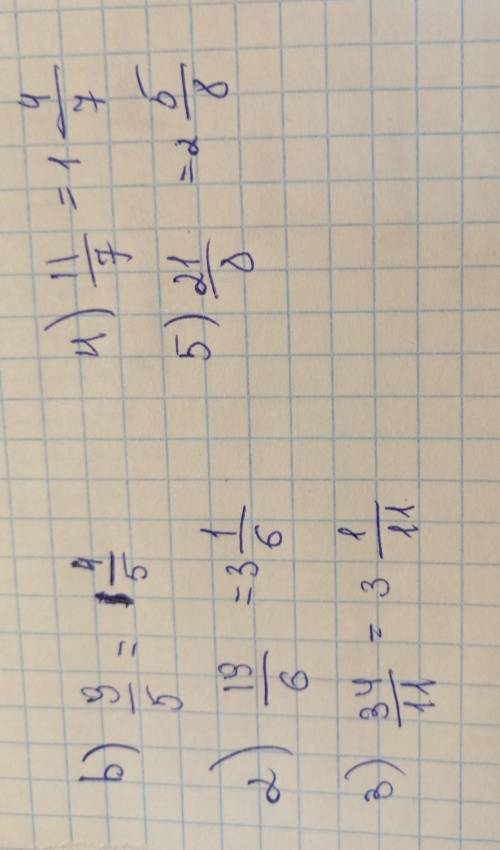 b) 9/5 = 1 4/5
2) 19/6 = 3 1/6
3) 34/11 = 3 1/11
4) 11/7 = 1 4/7
5) 21/8 = 2 5/8